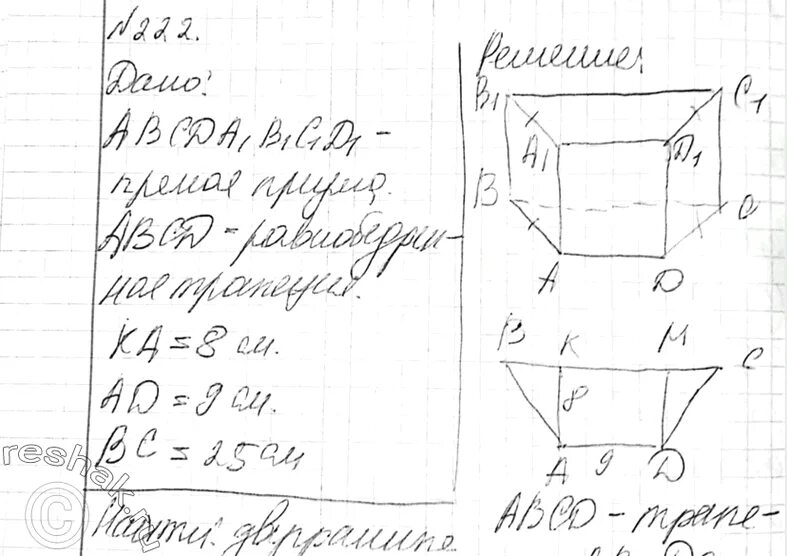 №222.
Дано:
ABCDA₁B₁C₁D₁ -
прямая призма.
ABCD - равнобедрен-
ная трапеция.
KA = 8 см.
AD = 9 см.
BC = 25 см
Найти: двугранные
Решение:
B₁
C₁
A₁
D₁
B
C
A
D
B
K
M
C
8
A
9
D
ABCD - трапе-
reshak.ru